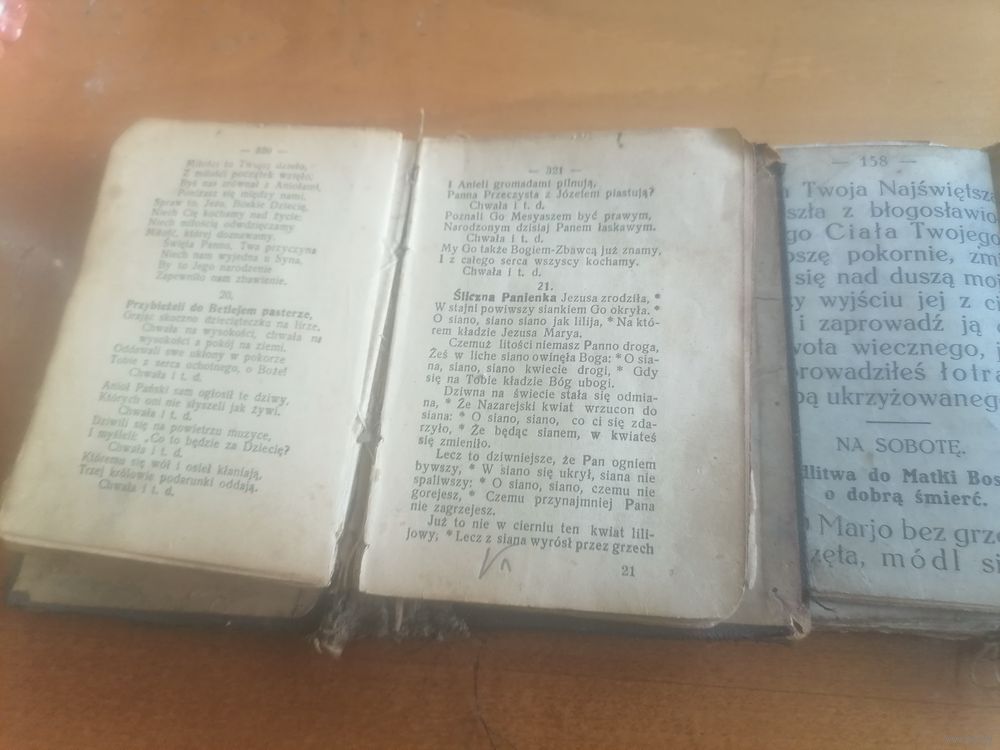 — 320 —
Miłości to Twojej dzieło,
Z miłości początek wzięło;
Byś nas zrównał z Aniołami,
Poniżasz się między nami.
Spraw to, Jezu, Boskie Dziecię,
Niech Cię kochamy nad życie;
Niech miłością odwdzięczamy
Miłość, której doznawamy.
Święta Panno, Twa przyczyna
Niech nam wyjedna u Syna,
By to Jego narodzenie
Zapewniło nam zbawienie.
20.
Przybieżeli do Betlejem pasterze,
Grając skoczno dzieciąteczku na lirze.
Chwała na wysokości, chwała na
wysokości a pokój na ziemi.
Oddawali swe ukłony w pokorze
Tobie z serca ochotnego, o Boże!
Chwała i t. d.
Anioł Pański sam ogłosił te dziwy,
Których oni nie słyszeli jak żywi.
Chwała i t. d.
Dziwili się na powietrzu muzyce,
I myśleli: „Co to będzie za Dziecię?
Chwała i t. d.
Któremu się wół i osieł kłaniają,
Trzej królowie podarunki oddają.
Chwała i t. d.
— 321 —
I Anieli gromadami pilnują,
Panna Przeczysta z Józefem piastują?
Chwała i t. d.
Poznali Go Mesyaszem być prawym,
Narodzonym dzisiaj Panem łaskawym.
Chwała i t. d.
My Go także Bogiem-Zbawcą już znamy,
I z całego serca wszyscy kochamy.
Chwała i t. d.
21.
Śliczna Panienka Jezusa zrodziła, *
W stajni powiwszy siankiem Go okryła. *
O siano, siano siano jak lilija, * Na któ-
rem kładzie Jezusa Marya.
Czemuż litości niemasz Panno droga,
Żeś w liche siano owinęła Boga: * O sia-
na, siano, siano kwiecie drogi, * Gdy
się na Tobie kładzie Bóg ubogi.
Dziwna na świecie stała się odmia-
na, * Że Nazarejski kwiat wrzucon do
siana: * O siano, siano, co ci się zda-
rzyło, * Że będąc sianem, w kwiateś
się zmieniło.
Lecz to dziwniejsze, że Pan ogniem
bywszy, * W siano się ukrył, siana nie
spaliwszy: * O siano, siano, czemu nie
gorejesz, * Czemu przynajmniej Pana
nie zagrzejesz.
Już to nie w cierniu ten kwiat lili-
jowy, * Lecz z siana wyrósł przez grzech
21
— 158 —
Twoja Najświętsza
szła z błogosławio
go Ciała Twojego
oszę pokornie, zmi
się nad duszą moj
y wyjściu jej z ci
i zaprowadź ją
wota wiecznego, j
rowadziłeś łotra
pą ukrzyżowanego
NA SOBOTĘ.
dlitwa do Matki Bos
o dobrą śmierć.
Marjo bez grze
zęta, módl si